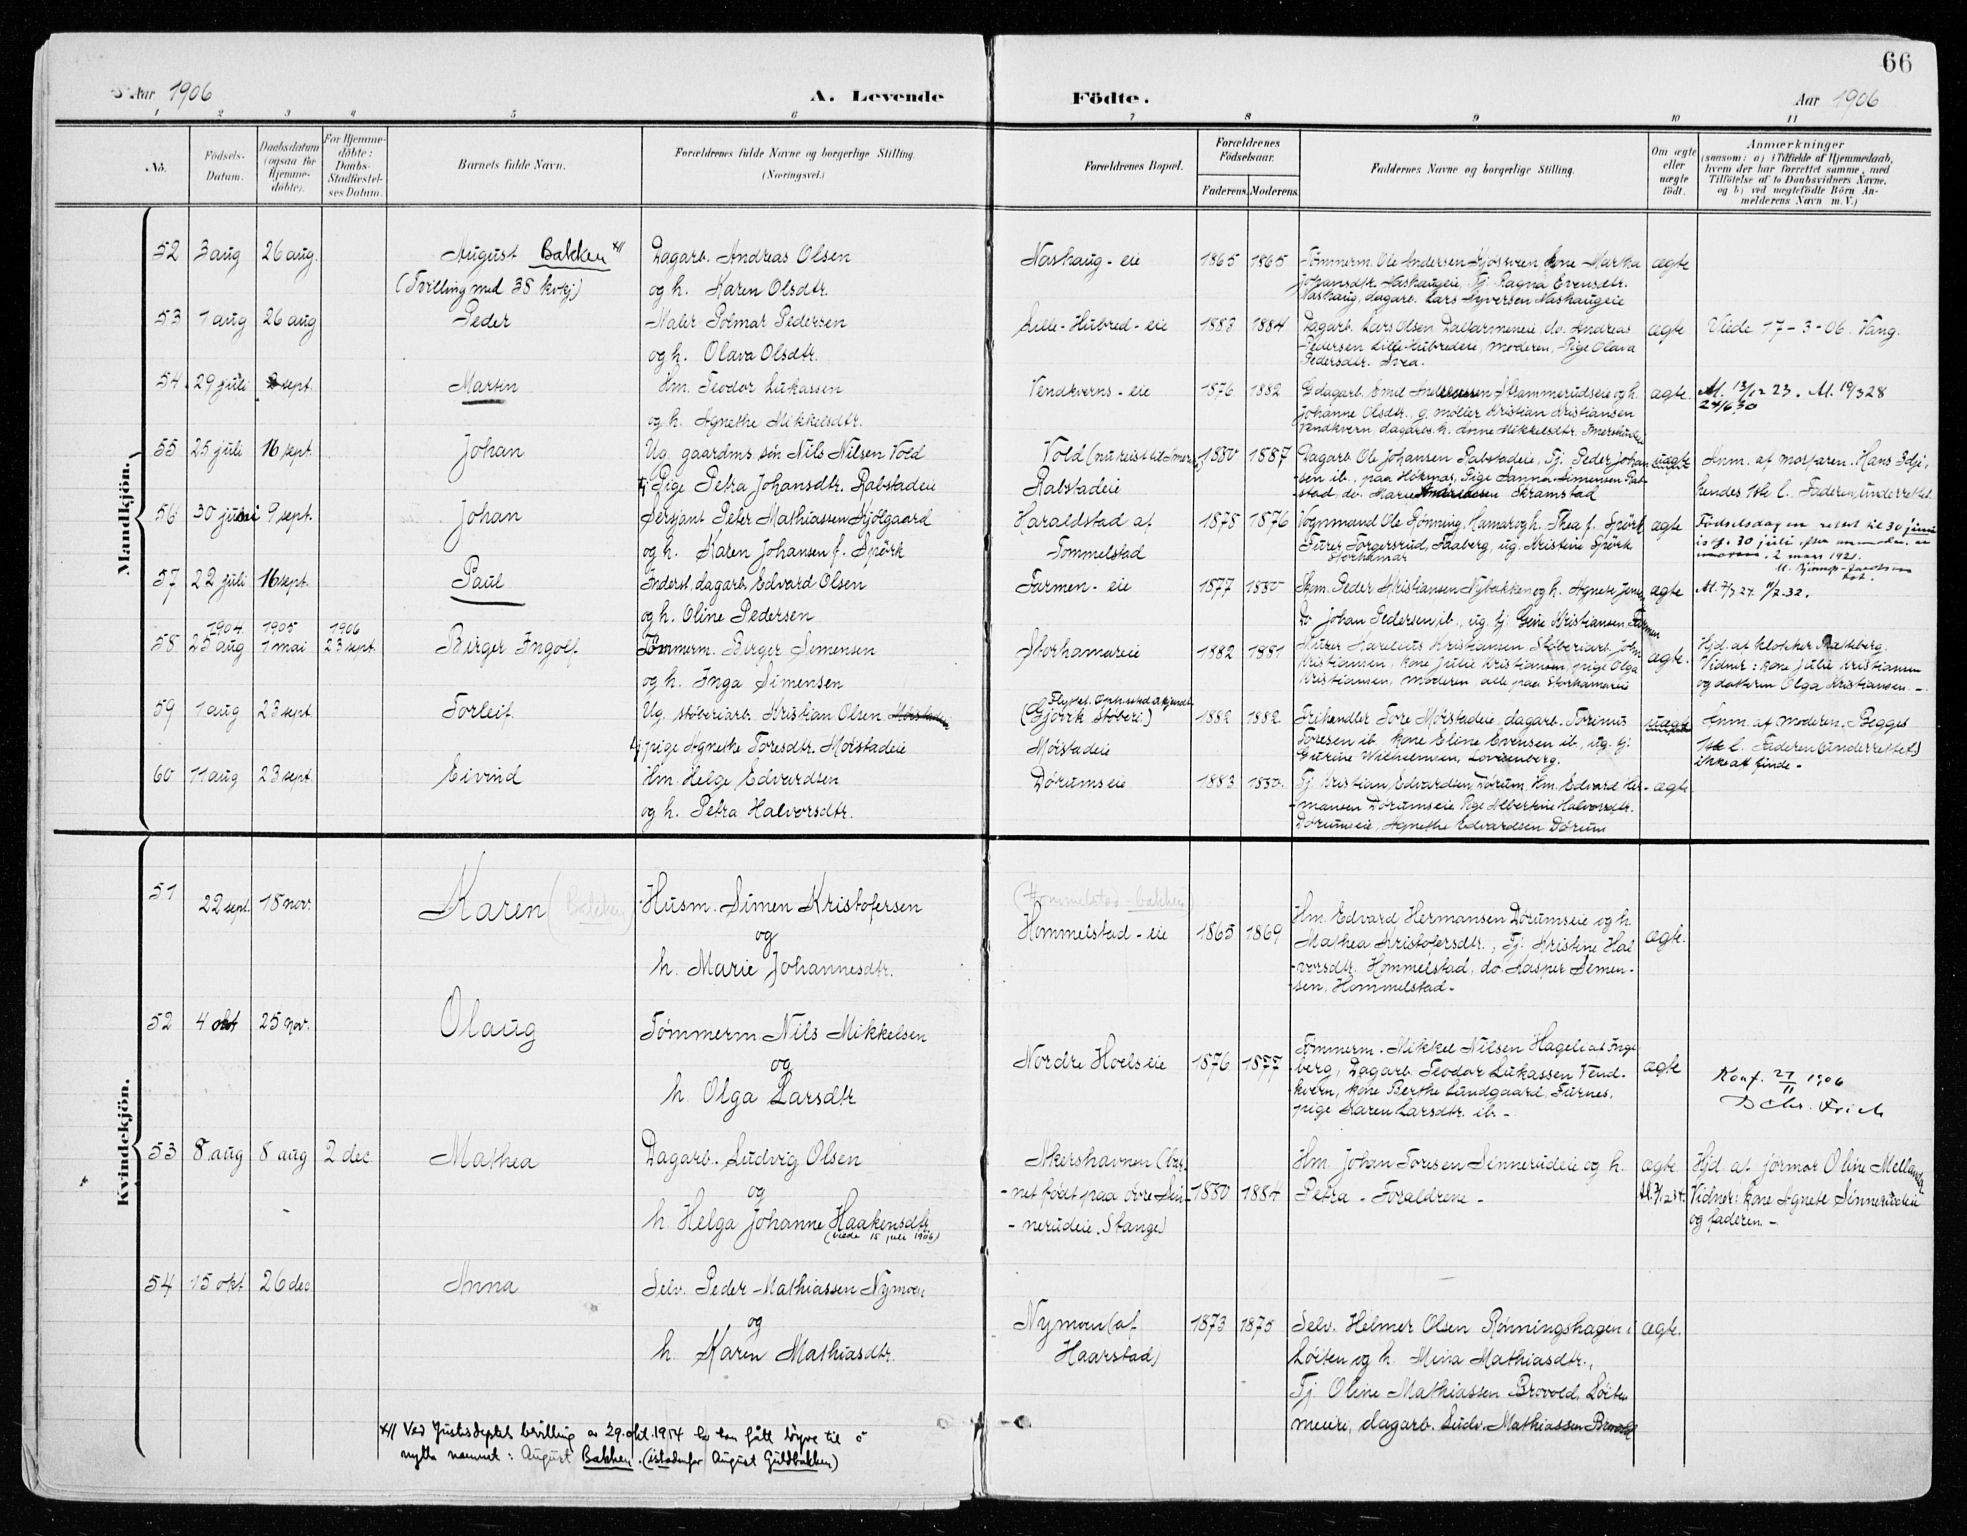 66
Aar 1906
A. Levende
Födte.
Aar 1906
1 2 3 4 5 6 7 8 9 10 11
No.
Födsels-
Datum.
Daabsdatum
(ogsaa for
Hjemme-
döbte).
For Hjemme-
döbte:
Daabs-
Stadfæstel-
ses Datum.
Barnets fulde Navn.
Forældrenes fulde Navne og borgerlige Stilling
(Næringsvei.)
Forældrenes Bopæl.
Forældrenes
Födselsaar.
Faderens. Moderens.
Faddernes Navne og borgerlige Stilling.
Om ægte
eller
uægte
födt.
Anmærkninger
(saasom: a) i Tilfælde af Hjemmedaab,
hvem der har forrettet samme, med
Tilföielse af to Daabsvidners Navne,
og b) ved uægtefödte Börn An-
melderens Navn m. V.)
Mandkjön.
52 3 aug 26 aug. August Bakken x)
(Tvilling med 38 kvkj)
Dagarb. Andreas Olsen
og h. Karen Olsdtr.
Nashaug-eie 1865 1865
Tømmerm. Ole Andersen kone Martha
Johansdtr. Nashaugeie, Tj. Ragna Evensdtr.
Nashaug, dagarb. Lars Syversen Nashaugeie
ægte
53 1 aug 26 aug Peder
Maler Polmar Pedersen
og h. Olava Olsdtr.
Lille-Hubred-eie 1883 1884
Dagarb. Lars Olsen Dalfarmeneie, do. Andreas
Pedersen Lille-Hubredeie, moderen, Pige Olava
Pedersdtr.
ægte Viede 17-3-06. Vang.
54. 29 juli 2 sept. Martin
Hm. Teodor Lukassen
og h. Agnethe Mikkelsdtr.
Vendkverns-eie 1876 1882
Gdagarb. Emil Andreassen Skrammerudseie og h.
Johanne Olsdtr., g. møller Kristian Kristiansen
Vendkvern, dagarbs. h. Anne Mikkelsdtr.
ægte. At. 13/12 23. At. 19/3 28
24/6 30
55 25 juli 16 sept. Johan
Ug. gaardms. søn Nils Nilsen Vold
Pige Petra Johansdtr. Rabstadeie
Vold (nu reist til Amerika)
Rabstadeie
1880 1887
Dagarb. Ole Johansen Rabstadeie, Tj. Peder Johan-
sen ib., paa Høknas, Pige Hanna Simensen Rab-
stad, do. Marie Andreassen Skramstad
uægte Anm. af morfaren. Hans
kendes 1ste l. Faderen underrettet
56 30 juni 9 sept. Johan
Sersjant Peter Mathiassen Fjølgaard
og h. Karen Johansen f. Spørk
Haraldstad af
Tommelstad
1878 1876
Vognmand Ole Rønning, Hamar og h. Thea f. Spørk
Furer Torgersrud, Faaberg, ug. Kristine Spørk
Storhamar
ægte Fødselsdagen rettet til 30 juni
istf. 30 juli
2 mars 1921.
57 22 juli 16 sept. Paul
Inderst, dagarb. Edvard Olsen
og h. Oline Pedersen
Farmen-eie 1877 1880
Skm. Peder Kristiansen Nybakken og h. Agnete Jensen
Do Johan Pedersen ib., ug. tj. Geine Kristiansen Farmen
ægte At. 7/3 27. 11/2 32.
1904 1905 1906
58 25 aug 1 mai 23 sept. Birger Ingolf
Tömmerm. Birger Simensen
og h. Inga Simensen
Storhamareie 1882 1881
Murer Karelius Kristiansen Støberiarb. John
Kristiansen, kone Julie Kristiansen, pige Olga
Kristiansen, moderen, alle paa Storhamareie
ægte. Hjd. af klokker Rasteberg.
Vidner: kone Julie Kristiansen
og datteren Olga Kristiansen.-
59 1 aug 23 sept. Torleif
Ug. støberiarb. Kristian Olsen
pige Agnethe Toresdtr. Morstadeie
(Gjövik Støberi)
Morstadeie
1882 1882
Frihandler Tore Morstadeie, dagarb. Torinus
Toresen ib. kone Eline Evensen ib., ug. tj.
Gurine Wilhelmsen, Lovisenberg.
uægte Anm. af moderen. Begges
1ste l. Faderen (underrettet)
ikke at finde.-
60 11 aug 23 sept. Eivind
Hm. Helge Edvardsen
og h. Petra Halvorsdtr.
Dørumseie 1883 1880.
Tj. Kristian Edvardsen, Dørum, Hm. Edvard Her-
mansen Dørumseie Pige Albertine Halvorsdtr.
Dørumseie, Agnethe Edvardsen Dørum
ægte.
Kvindekjön.
51 22 sept. 18 nov. Karen (Bakken)
Husm. Simen Kristofersen
og
h. Marie Johannesdtr.
(Hommelstad-bakken)
Hommelstad-eie 1865 1869
Hm. Edvard Hermansen Dørumseie og h.
Mathea Kristofersdtr., Tj. Kristine Hal-
vorsdtr. Hommelstad, do. Kasper Simen-
sen, Hommelstad.-
ægte.
52 4 okt 25 nov. Olaug
Tømmerm Nils Mikkelsen
og
h. Olga Larsdtr
Nordre Hoelseie 1876 1877
Tømmerm. Mikkel Nilsen Hageli af Inge-
berg, Dagarb. Teodor Lukassen Vend-
kvern, kone Berthe Lundgaard, Furnes,
pige Karen Larsdtr. ib.-
ægte Konf. 27/11 1906
53 8 aug 8 aug 2 dec Mathea
Dagarb. Ludvig Olsen
og
h. Helga Johanne Haakensdtr.
(viede 15 juli 1906)
Akershavnen (bar-
net født paa øvre Sin-
nerudeie, Stange)
1880 1884
Hm. Johan Toresen Sinnerudeie og h.
Petra - Forældrene -
ægte Hjd. af jormor Oline
Vidner: kone Agnete Sinnerudeie
og faderen.-
54 15 okt 26 dec Anna
Selv. Peder Mathiassen Nymoen
og
h. Karen Mathiasdtr.
Nymoen (af
Haarstad)
1873 1875
Selv. Helmer Olsen Rønningshagen i
Løiten og h. Mina Mathiasdtr.,
Tj. Oline Mathiassen Brovold, Løiten
meieri, dagarb. Ludv. Mathiassen Brovold
ægte.
x) Ved Justisdeptets bevilling av 29. okt. 1914 har han fått løyve til å
nytte namnet: August Bakken. (istadenfor August Guldbakken)